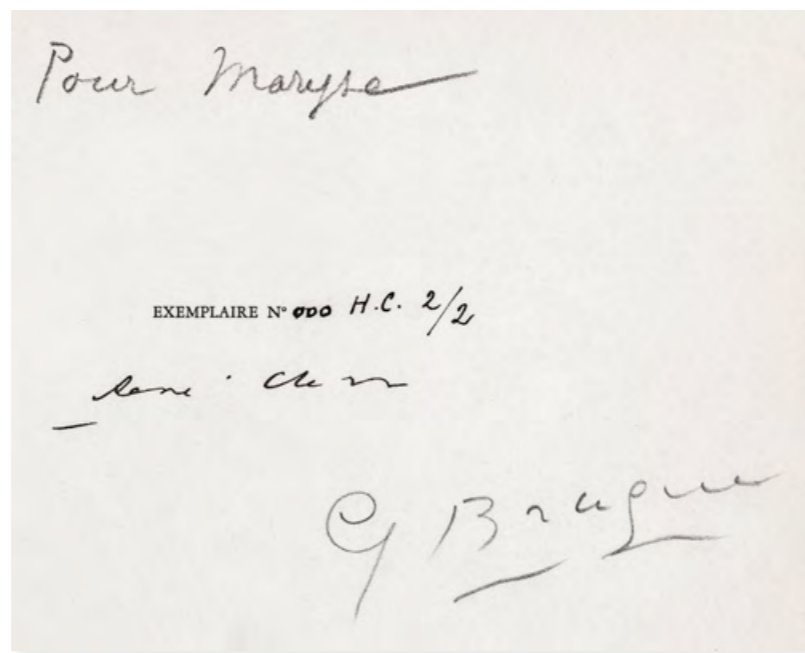 Pour Maryse
EXEMPLAIRE N° 000 H.C. 2/2
René Char
G Braque